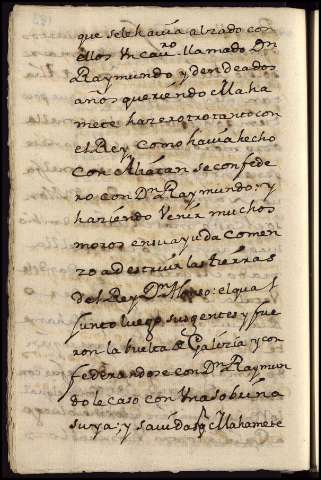 que sele havia alzado con
ellos Vn cav.ro llamado Dn
Raymundo y dendeados
años queriendo Maha
mete hazer otro tanto con
el Rey como havia hecho
con Aliatan se confede
ro con Dn Raymundo: y
haziendo Venir muchos
moros en su ayuda comen
zo a destruir las tierras
del Rey Dn Alonso: el qual
junto luego sus gentes y fue
ron la buelta de Galizia y con
federandose con Dn Raymun
do le caso con Vna sobrina
suya; y savido q Mahamete